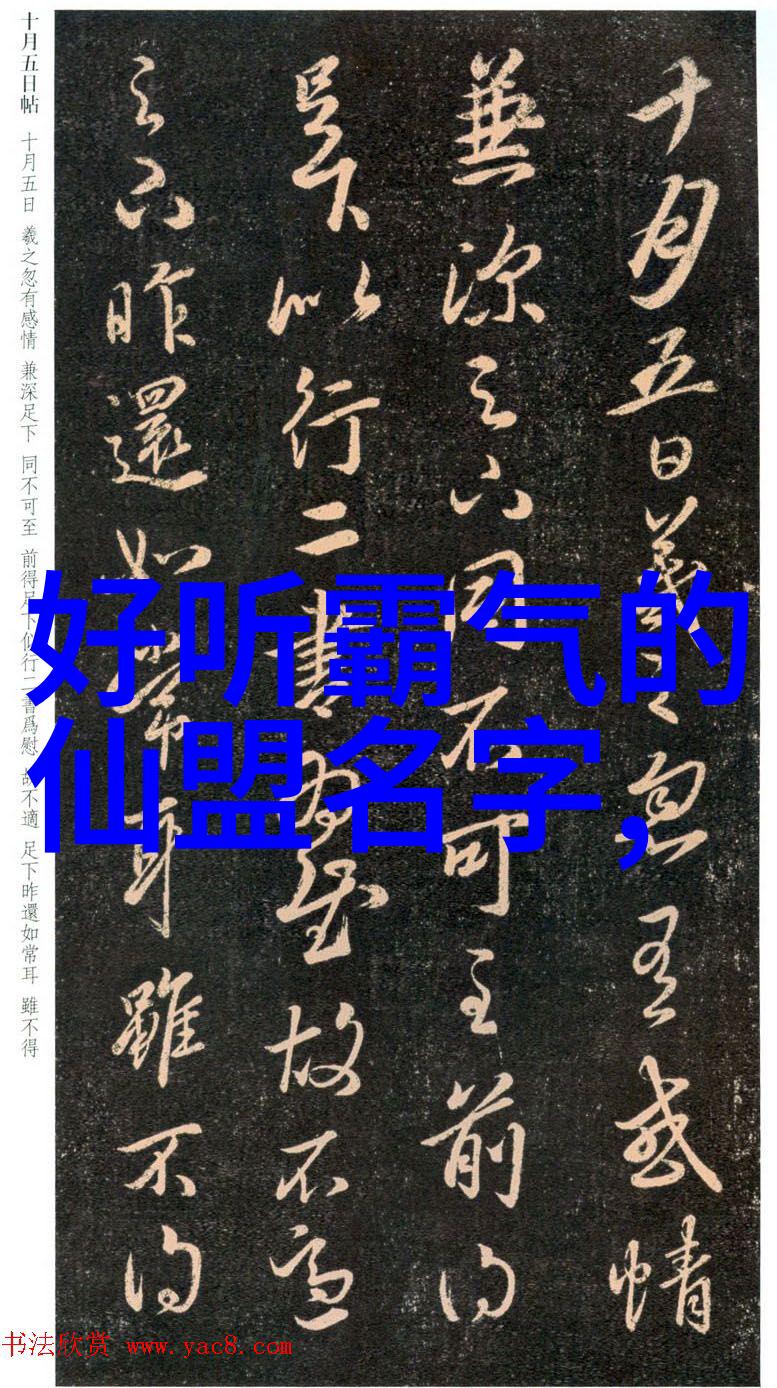 十月五日羲之忽有感情
兼深足下同不可至前得
足下以行二書為慰故不適
足下昨還如常耳雖不得
十月五日帖 十月五日 羲之忽有感情 兼深足下 同不可至 前得足下以行二書爲慰 故不適 足下昨還如常耳 雖不得
好听霸气的
仙盟名字,
书法欣赏 www.yac8.com